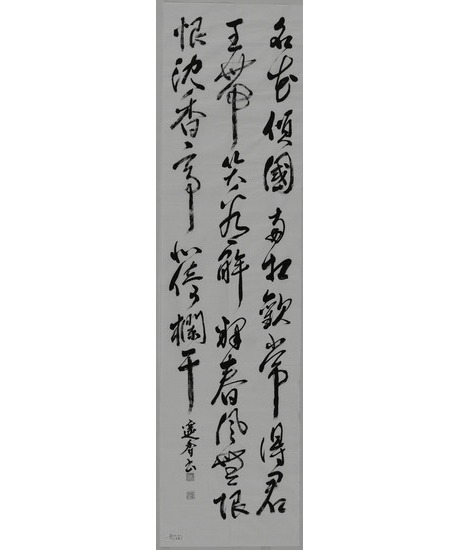 名花傾國両相歓常得君
王帶笑看解釋春風無限
恨沈香亭北倚欄干
香書